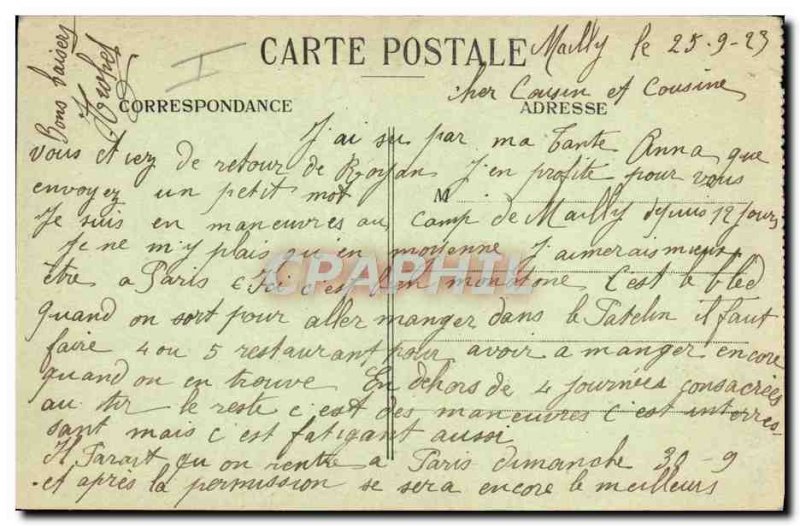 CARTE POSTALE
Mailly le 25-9-23
cher Cousin et Cousine
CORRESPONDANCE
ADRESSE
J'ai su par ma Tante Anna que
vous etiez de retour de Royan J'en profite pour vous
envoyez un petit mot
M
Je suis en maneuvres au camp de Mailly depuis 12 jours
Je ne m'y plais qu'en moyenne J'aimerais mieux
être a Paris Ici c'est bien monotone c'est le bled
quand on sort pour aller manger dans le Patelin il faut
faire 4 ou 5 restaurant pour avoir a manger encore
quand on en trouve En dehors de 4 journées consacrées
au tir le reste c'est des maneuvres c'est interres-
sant mais c'est fatigant aussi
Il Parait qu'on rentre a Paris dimanche 30-9
et après la permission se sera encore le meilleurs
Bons baisers
CPARAMA